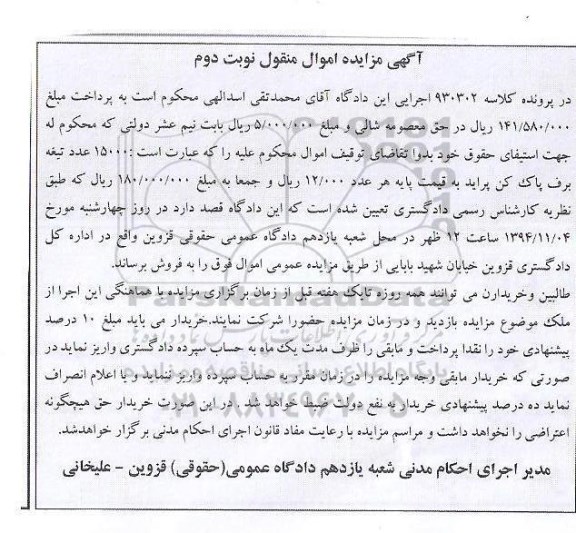 آگهی مزایده اموال منقول نوبت دوم
در پرونده کلاسه ۹۳۰۳۰۲ اجرایی این دادگاه آقای محمدتقی اسدالهی محکوم است به پرداخت مبلغ
۱۴۱/۵۸۰/۰۰۰ ریال در حق معصومه شالی و مبلغ ۵/۰۰۰/۰۰۰ ریال بابت نیم عشر دولتی که محکوم له
جهت استیفای حقوق خود بدوا تقاضای توقیف اموال محکوم علیه را که عبارت است :۱۵۰۰۰ عدد تیغه
برف پاک کن پراید به قیمت پایه هر عدد ۱۲/۰۰۰ ریال و جمعا به مبلغ ۱۸۰/۰۰۰/۰۰۰ ریال که طبق
نظریه کارشناس رسمی دادگستری تعیین شده است که این دادگاه قصد دارد در روز چهارشنبه مورخ
۱۳۹۴/۱۱/۰۴ ساعت ۱۲ ظهر در محل شعبه یازدهم دادگاه عمومی حقوقی قزوین واقع در اداره کل
دادگستری قزوین خیابان شهید بابایی از طریق مزایده عمومی اموال فوق را به فروش برساند.
طالبین وخریدارن می توانند همه روزه تایک هفته قبل از زمان برگزاری مزایده با هماهنگی این اجرا از
ملک موضوع مزایده بازدید و در زمان مزایده حضورا شرکت نمایند.خریدار می باید مبلغ ۱۰ درصد
پیشنهادی خود را نقدا پرداخت و مابقی را ظرف مدت یک ماه به حساب سپرده دادگستری واریز نماید در
صورتی که خریدار مابقی وجه مزایده را در زمان مقرر به حساب سپرده واریز ننماید و یا اعلام انصراف
نماید ده درصد پیشنهادی خریدار به نفع دولت ضبط خواهد شد . در این صورت خریدار حق هیچگونه
اعتراضی را نخواهد داشت و مراسم مزایده با رعایت مفاد قانون اجرای احکام مدنی برگزار خواهدشد.
مدیر اجرای احکام مدنی شعبه یازدهم دادگاه عمومی(حقوقی) قزوین - علیخانی